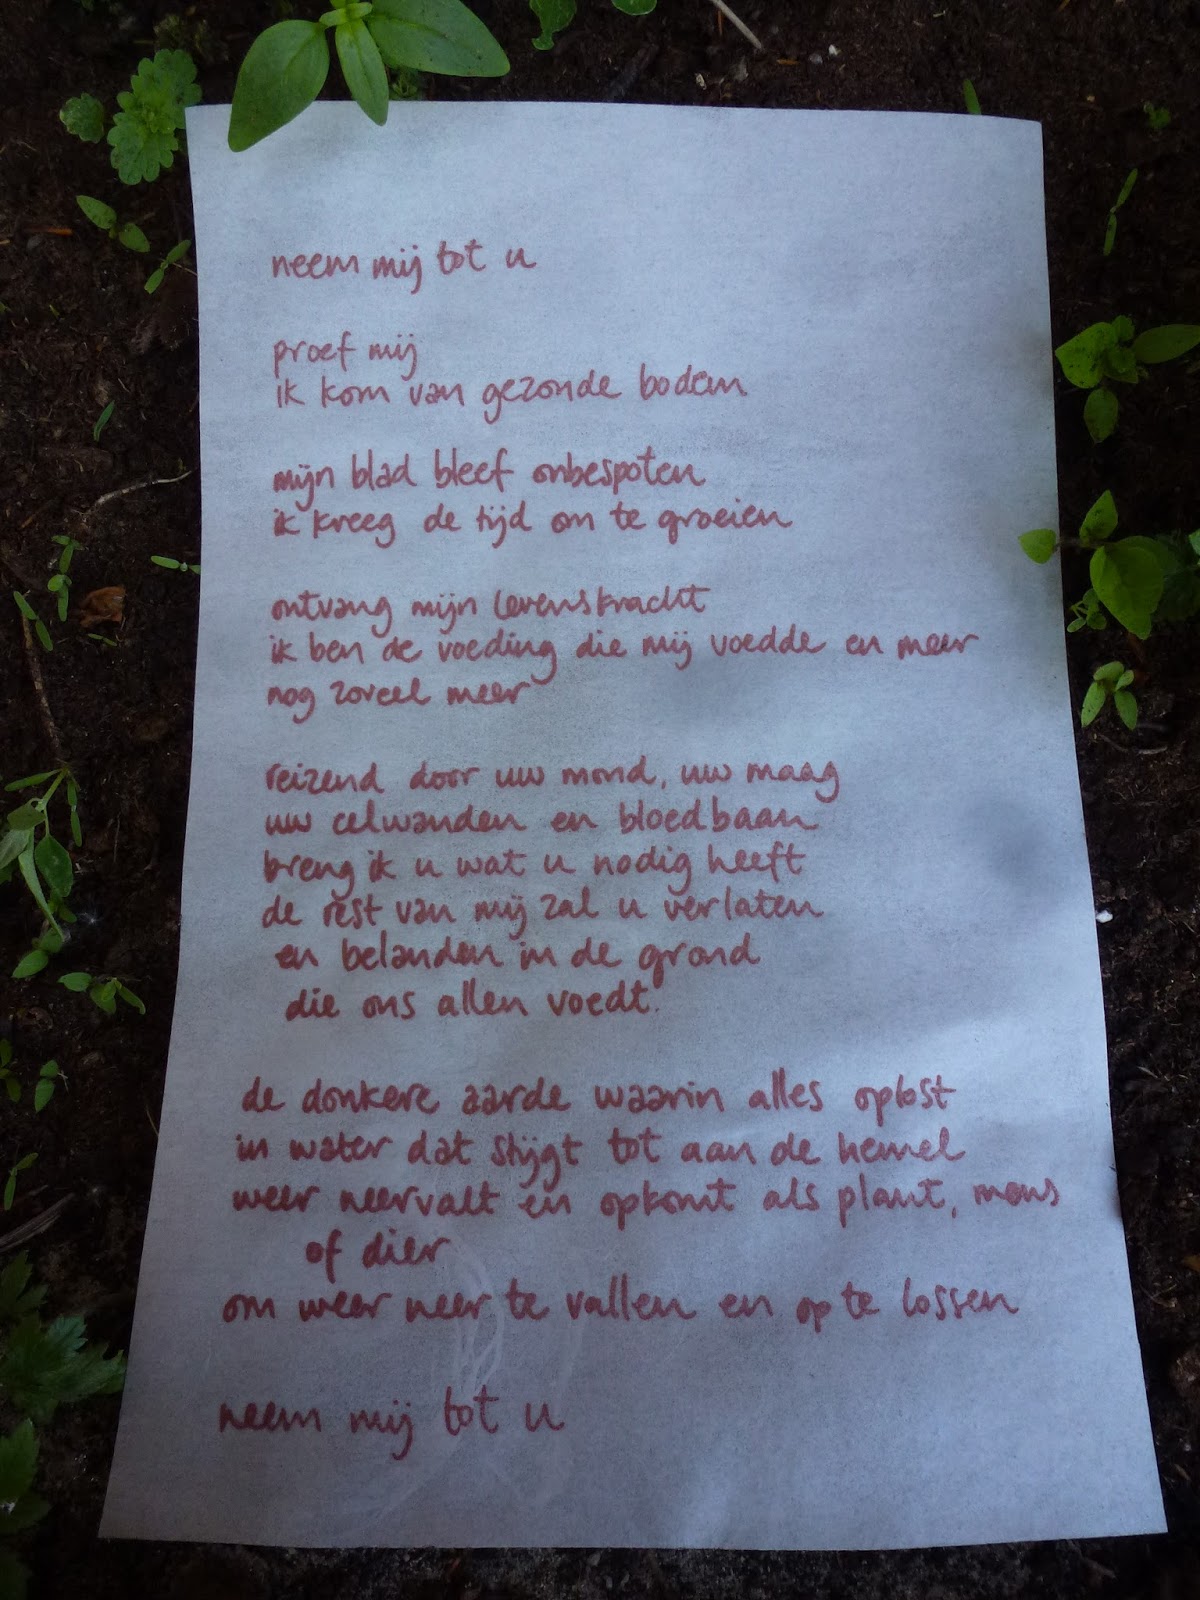 neem mij tot u
proef mij
ik kom van gezonde bodem
mijn blad bleef onbespoten
ik kreeg de tijd om te groeien
ontvang mijn levenskracht
ik ben de voeding die mij voedde en meer
nog zoveel meer
reizend door uw mond, uw maag
uw celwanden en bloedbaan
breng ik u wat u nodig heeft
de rest van mij zal u verlaten
en belanden in de grond
die ons allen voedt.
de donkere aarde waarin alles oplost
in water dat stijgt tot aan de hemel
weer neervalt en opkomt als plant, mens
of dier
om weer neer te vallen en op te lossen
neem mij tot u